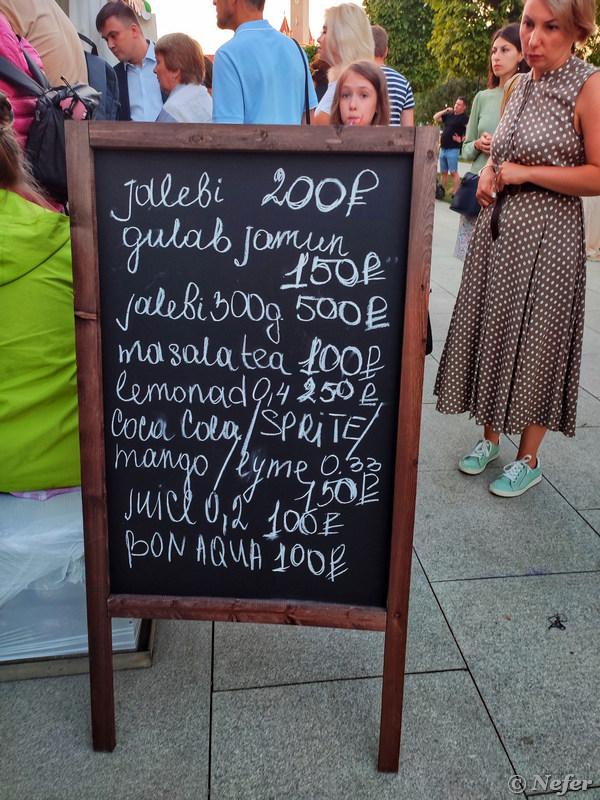 jalebi 200₽
gulab jamun
150₽
jalebi 300g 500₽
masala tea 100₽
lemonad 0,4 250₽
coca cola / SPRiTE /
mango / lyme 0.33
150₽
juice 0,2 100₽
BON AQUA 100₽
© Nefer